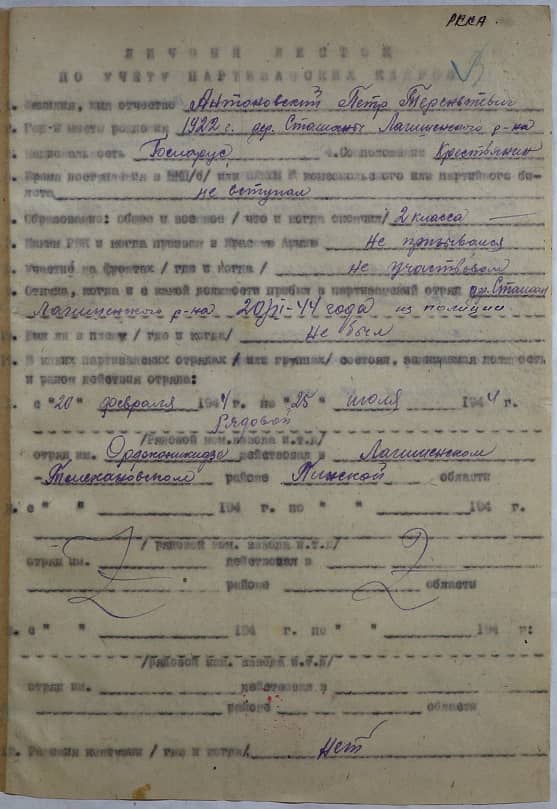 РККА
ЛИЧНЫЙ ЛИСТОК
ПО УЧЕТУ ПАРТИЗАНСКИХ КАДРОВ
Фамилия, имя отчество Антоновский Петр Терентьевич
Год и место рождения 1922 г. дер. Сташаны Логишенского р-на
Национальность Белорус 4. Соцположение Крестьянин
Время вступления в ВКП/б/ или комсомольского или партийного би-
лета не вступал
Образование: общее и военное / что и когда окончил/ 2 класса
Каким РВК и когда призван в Красную Армию Не призывался
Участие на фронтах / где и когда / не участвовал
Откуда, когда и с какой должности прибыл в партизанский отряд др. Сташаны
Логишенского р-на 20/II-44 года из полиции
Был ли в плену / где и когда/ Не был
В каких партизанских отрядах / или группах/ состоял, занимаемая должность
и район действия отряда:
с "20" февраля 1944 г. по "25" июля 1944 г.
Рядовой
/рядовой ком.взвода и.т.д/
отряд им. Орджоникидзе действовал в Логишенском
-Телехановском районе Пинской области
с " " 194 г. по " " 194 г.
/ рядовой ком. взвода и.т.д/
отряд им. действовал в
районе области
с " " 194 г. по " " 194 г.
/рядовой ком. взвода и.т.д/
отряд им. действовал в
районе области
Ранения контузии / где и когда/ Нет